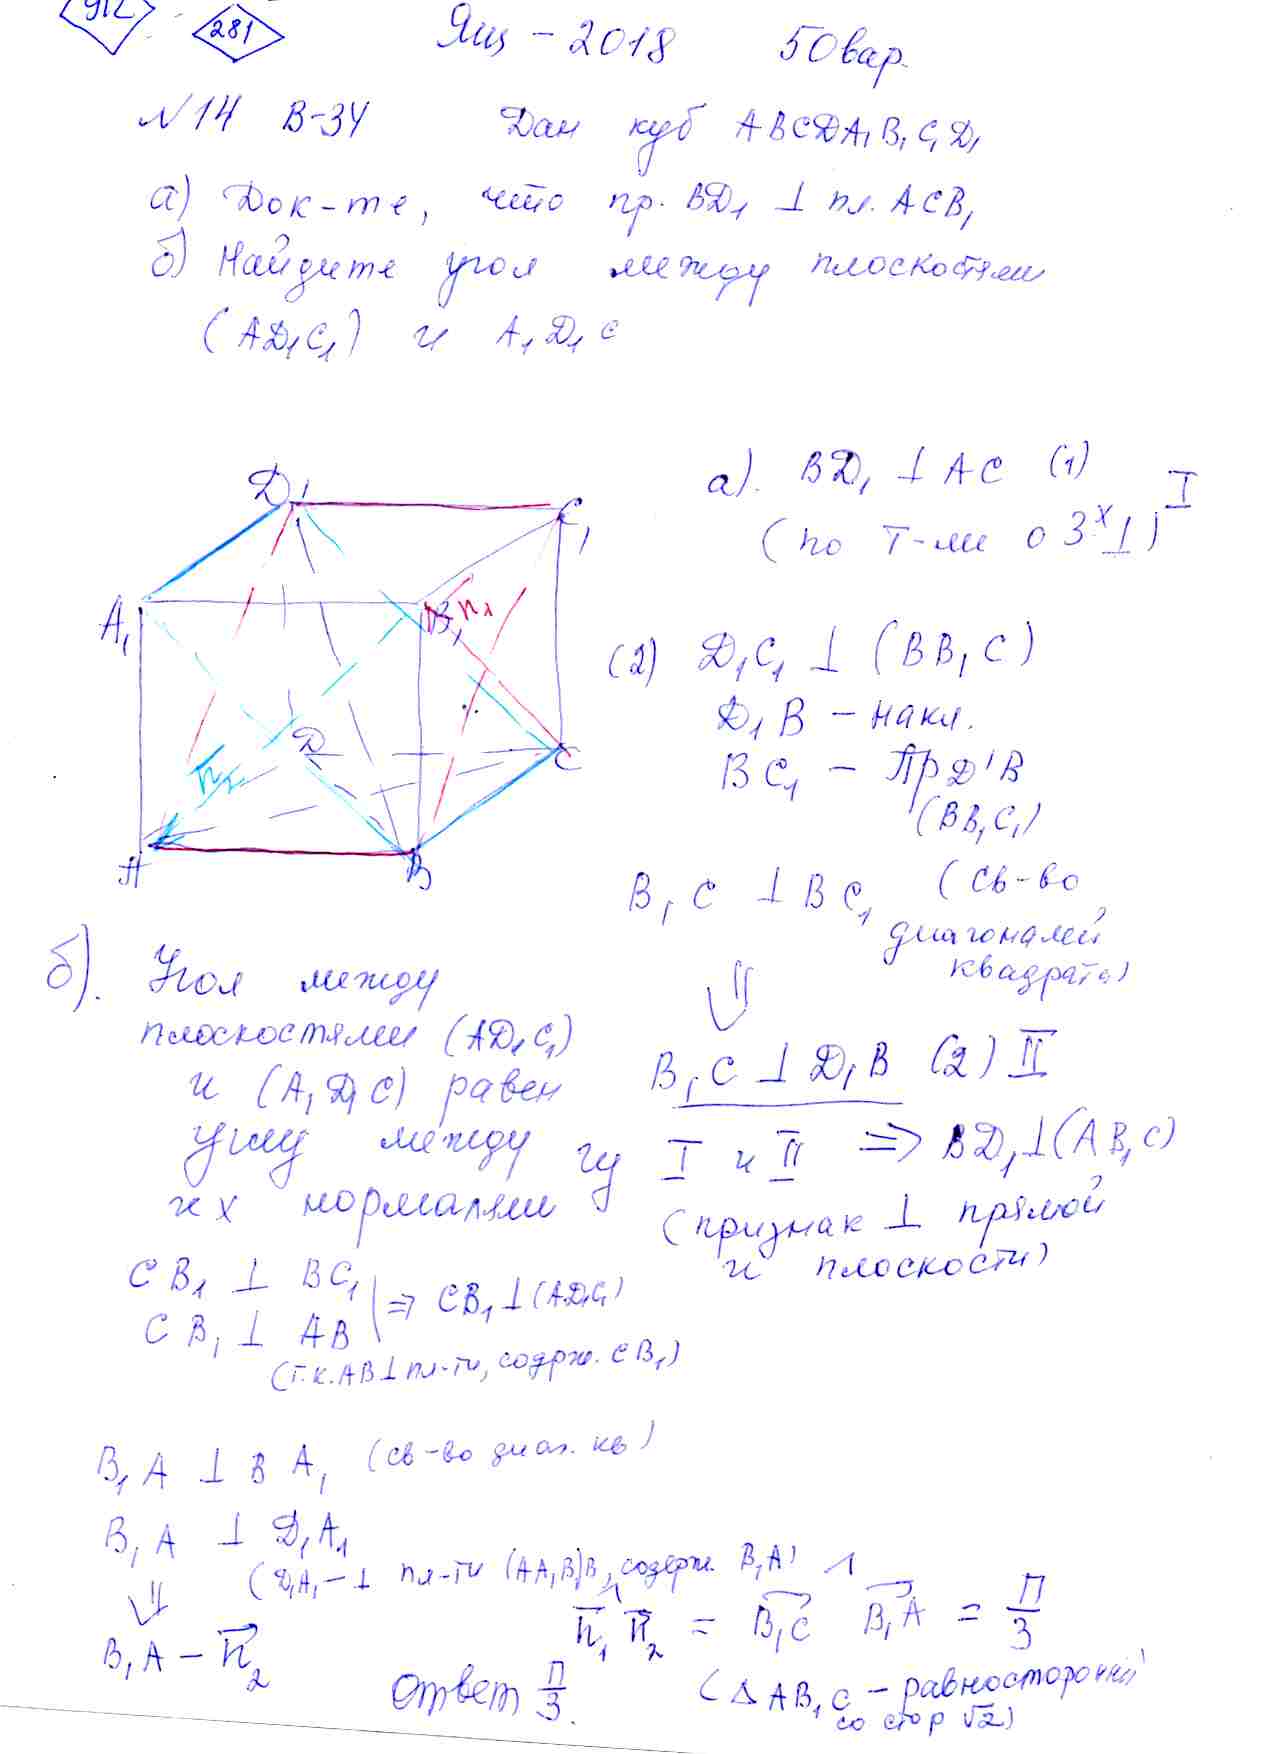 912
281
Ящ - 2018 50 вар.
№14 В-34 Дан куб ABCDA₁B₁C₁D₁
а) Док-те, что пр. BD₁ ⊥ пл. ACB₁
б) Найдите угол между плоскостями
(AD₁C₁) и A₁D₁C
D₁
C₁
A₁
B₁
n₁
D
C
n₂
A
B
а). BD₁ ⊥ AC (1) I
(по т-ме о 3ˣ ⊥)
(2) D₁C₁ ⊥ (BB₁C)
D₁B - накл.
BC₁ - Пр D'B
(BB₁C₁)
B₁C ⊥ BC₁ (св-во
диагоналей
квадрата)
⇓
B₁C ⊥ D₁B (2) II
I и II => BD₁ ⊥ (AB₁C)
(признак ⊥ прямой
и плоскости)
б). Угол между
плоскостями (AD₁C₁)
и (A₁D₁C) равен
углу между
их нормалями
CB₁ ⊥ BC₁
CB₁ ⊥ AB
=> CB₁ ⊥ (AD₁C₁)
(т.к. AB ⊥ пл-ти, содрж. CB₁)
B₁A ⊥ BA₁ (св-во диаг. кв)
B₁A ⊥ D₁A₁
(D₁A₁ - ⊥ пл-ти (AA₁B₁)B, содерж. B₁A)
⇓
B₁A - n₂
n₁ n₂ = B₁C B₁A = П/3
(Δ AB₁C - равносторонний
со стор √2)
Ответ П/3.